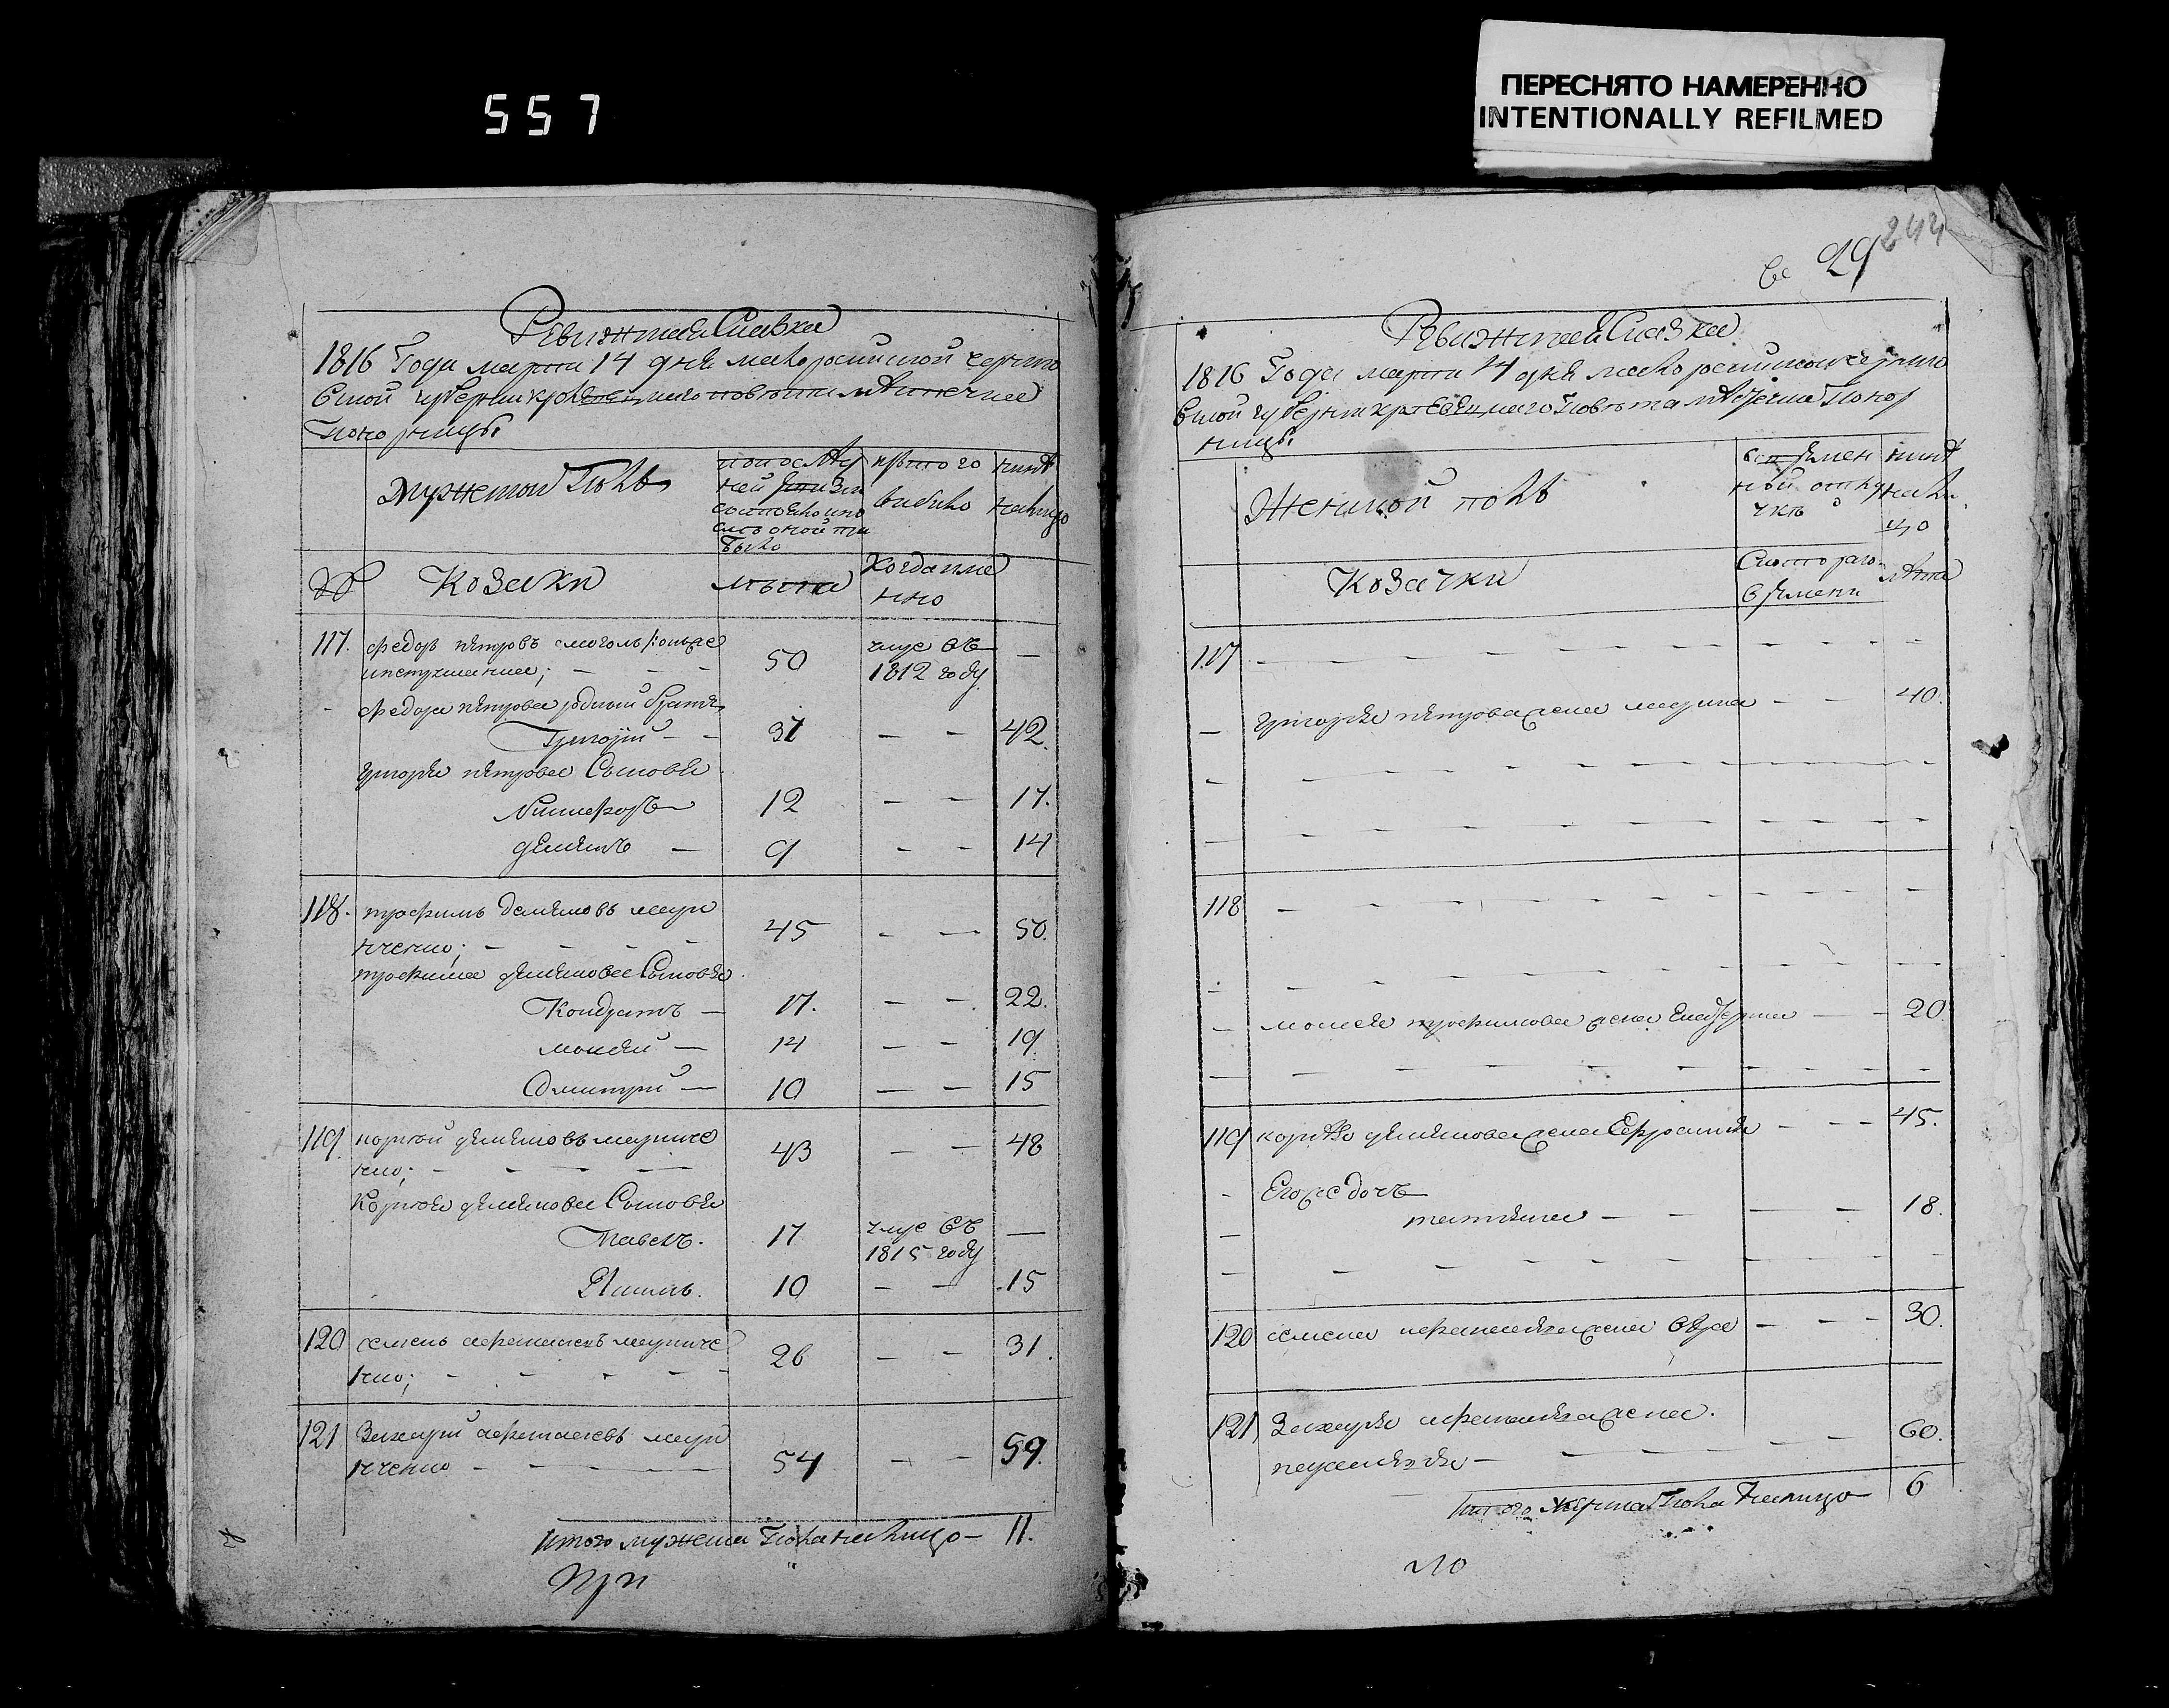 557
ПЕРЕСНЯТО НАМЕРЕННО
INTENTIONALLY REFILMED
244
29
Ревижская Сказка
1816 Года марта 14 дня малороссийской черниго
вской губернии кролевецкаго повета местечка
Понорницы
Мужеской Полъ
по последней ревизии состояло и после оной прибыло
изъ того выбыло
ныне налицо
№ Козаки
лета
Когда именно
117. федоръ петровъ
50
умре въ
1812 году
—
федора петрова родной братъ
Григорій — —
37
— —
42.
григория петрова Сыновья
Никифоръ
12
— —
17.
демянъ —
9
— —
14
118. трофимъ демяновъ мари
нченко; — — — —
45
— —
50.
трофима демянова Сыновья
Кондратъ —
17.
— —
22.
мойсей —
14
— —
19.
Дмитрий —
10
— —
15
119. корней демяновъ мариче
нко; — — — —
43
— —
48
Корнея демянова Сыновья
Павелъ.
17
умре въ
1815 году
—
Якимъ.
10
— —
15
120 семенъ афанасевъ мариче
нко; — — — —
26
— —
31.
121 Захарий афанасевъ мари
нченко — — —
54
— —
59.
Итого мужеска Пола налицо — 11.
При
Ревижская Сказка
1816 Года марта 14 дня малороссийской черниго
вской губернии кролевецкаго Повета местечка Понор
ницы
Женской полъ
во временной отлучке
ныне налицо
Козачки
Съ которого времени
лета
117
григория петрова жена марина — —
40.
118
мойсея трофимова жена Екатерина — —
20.
119 корнея демянова жена Ефросиния — — —
45.
Его же дочь
татияна — — — —
18.
120 семена афанасиева жена — — —
30.
121 Захария афанасиева жена
пелагея —
60.
Итого женска Пола налицо
6